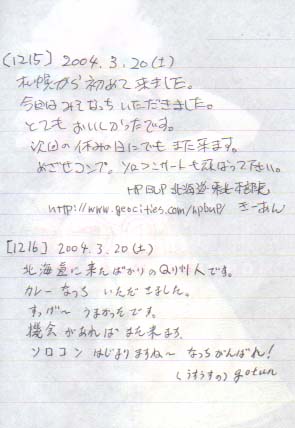 [1215] 2004.3.20(土)
札幌から初めて来ました。
今回はみそなっちいただきました。
とてもおいしかったです。
次回の休みの日にでもまた来ます。
めざせコンプ。ソロコンサートも頑ばって下さい。
HPBUP 北海道
http://www.geocities.com/hpbup/ きーあん
[1216] 2004.3.20(土)
北海道に来たばかりのQ州人です。
カレーなっち いただきました。
すっげ〜 うまかったです。
機会があればまた来ます。
ソロコン はじまりますね〜 なっちがんばれ!
(うすうすの) gotun